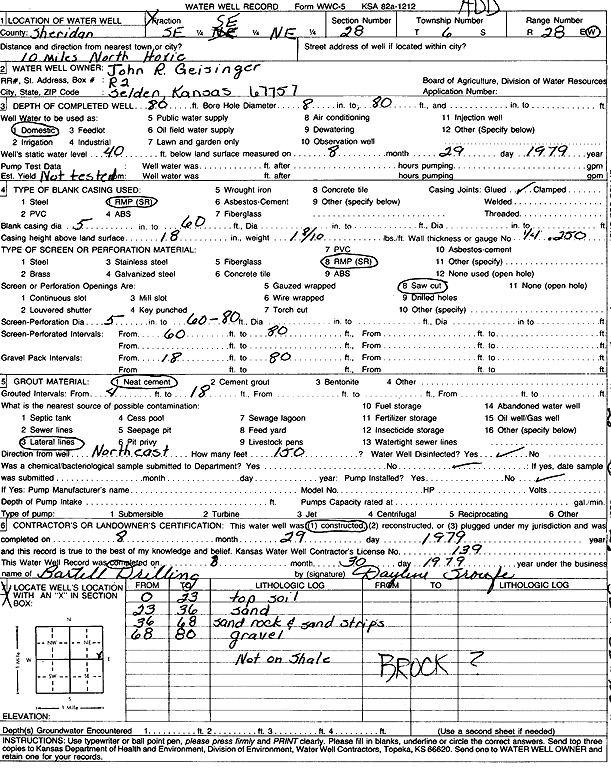 WATER WELL RECORD Form WWC-5 KSA 82a-1212 ADD
1 LOCATION OF WATER WELL Fraction SE Section Number Township Number Range Number
County: Sheridan SE ¼ NE ¼ NE ¼ 28 T 6 S R 28 E(W)
Distance and direction from nearest town or city? Street address of well if located within city?
10 Miles North Hoxie
2 WATER WELL OWNER: John R. Geisinger
RR#, St. Address, Box # : R2 Board of Agriculture, Division of Water Resources
City, State, ZIP Code : Selden, Kansas 67757 Application Number:
3 DEPTH OF COMPLETED WELL 80 ft. Bore Hole Diameter 8 in. to, 80 ft., and in. to ft.
Well Water to be used as: 5 Public water supply 8 Air conditioning 11 Injection well
1 Domestic 3 Feedlot 6 Oil field water supply 9 Dewatering 12 Other (Specify below)
2 Irrigation 4 Industrial 7 Lawn and garden only 10 Observation well
Well's static water level 40 ft. below land surface measured on 8 month 29 day 1979 year
Pump Test Data Well water was: ft. after hours pumping gpm
Est. Yield Not tested Well water was: ft. after hours pumping gpm
4 TYPE OF BLANK CASING USED: 5 Wrought iron 8 Concrete tile Casing Joints: Glued ✓ Clamped
1 Steel 3 RMP (SR) 6 Asbestos-Cement 9 Other (specify below) Welded
2 PVC 4 ABS 7 Fiberglass Threaded
Blank casing dia 5 in. to 60 ft., Dia in. to ft., Dia in. to ft.
Casing height above land surface 18 in., weight 1 9/10 lbs./ft. Wall thickness or gauge No. 1/4 .250
TYPE OF SCREEN OR PERFORATION MATERIAL: 7 PVC 10 Asbestos-cement
1 Steel 3 Stainless steel 5 Fiberglass 8 RMP (SR) 11 Other (specify)
2 Brass 4 Galvanized steel 6 Concrete tile 9 ABS 12 None used (open hole)
Screen or Perforation Openings Are: 5 Gauzed wrapped 8 Saw cut 11 None (open hole)
1 Continuous slot 3 Mill slot 6 Wire wrapped 9 Drilled holes
2 Louvered shutter 4 Key punched 7 Torch cut 10 Other (specify)
Screen-Perforation Dia 5 in. to 60-80 ft., Dia in. to ft., Dia in. to ft.
Screen-Perforated Intervals: From 60 ft. to 80 ft., From ft. to ft.
From ft. to ft., From ft. to ft.
Gravel Pack Intervals: From 18 ft. to 80 ft., From ft. to ft.
From ft. to ft., From ft. to ft.
5 GROUT MATERIAL: 1 Neat cement 2 Cement grout 3 Bentonite 4 Other
Grouted Intervals: From 4 ft. to 18 ft., From ft. to ft., From ft. to ft.
What is the nearest source of possible contamination: 10 Fuel storage 14 Abandoned water well
1 Septic tank 4 Cess pool 7 Sewage lagoon 11 Fertilizer storage 15 Oil well/Gas well
2 Sewer lines 5 Seepage pit 8 Feed yard 12 Insecticide storage 16 Other (specify below)
3 Lateral lines 6 Pit privy 9 Livestock pens 13 Watertight sewer lines
Direction from well Northeast How many feet 150 ? Water Well Disinfected? Yes ✓ No
Was a chemical/bacteriological sample submitted to Department? Yes No ✓ : If yes, date sample
was submitted month day year: Pump Installed? Yes ✓ No
If Yes: Pump Manufacturer's name Model No. HP Volts
Depth of Pump Intake ft. Pumps Capacity rated at gal./min.
Type of pump: 1 Submersible 2 Turbine 3 Jet 4 Centrifugal 5 Reciprocating 6 Other
6 CONTRACTOR'S OR LANDOWNER'S CERTIFICATION: This water well was (1) constructed, (2) reconstructed, or (3) plugged under my jurisdiction and was
completed on 8 month 29 day 1979 year
and this record is true to the best of my knowledge and belief. Kansas Water Well Contractor's License No. 139
This Water Well Record was completed on 8 month 30 day 1979 year under the business
name of Bartell Drilling by (signature)
X LOCATE WELL'S LOCATION WITH AN "X" IN SECTION BOX: FROM TO LITHOLOGIC LOG FROM TO LITHOLOGIC LOG
0 23 top soil
23 36 sand
36 68 sand rock & sand strips
68 80 gravel
Not on Shale BROCK ?
N
NW NE
W E X
SW SE
S
1 Mile
1 Mile
ELEVATION:
Depth(s) Groundwater Encountered 1. ft. 2. ft. 3. ft. 4. ft. (Use a second sheet if needed)
INSTRUCTIONS: Use typewriter or ball point pen, please press firmly and PRINT clearly. Please fill in blanks, underline or circle the correct answers. Send top three
copies to Kansas Department of Health and Environment, Division of Environment, Water Well Contractors, Topeka, KS 66620. Send one to WATER WELL OWNER and
retain one for your records.